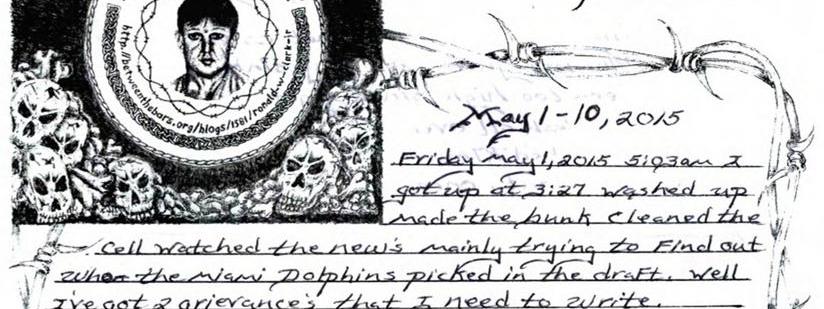 http://betweenthebars.org/blogs/1581/ronald-w-clark-jr
May 1-10, 2015
Friday May 1, 2015 5:03am I
got up at 3:27 washed up
made the bunk cleaned the
cell watched the new's mainly trying to Find out
who the Miami Dolphins picked in the draft. Well
I've got 2 grievance's that I need to write.